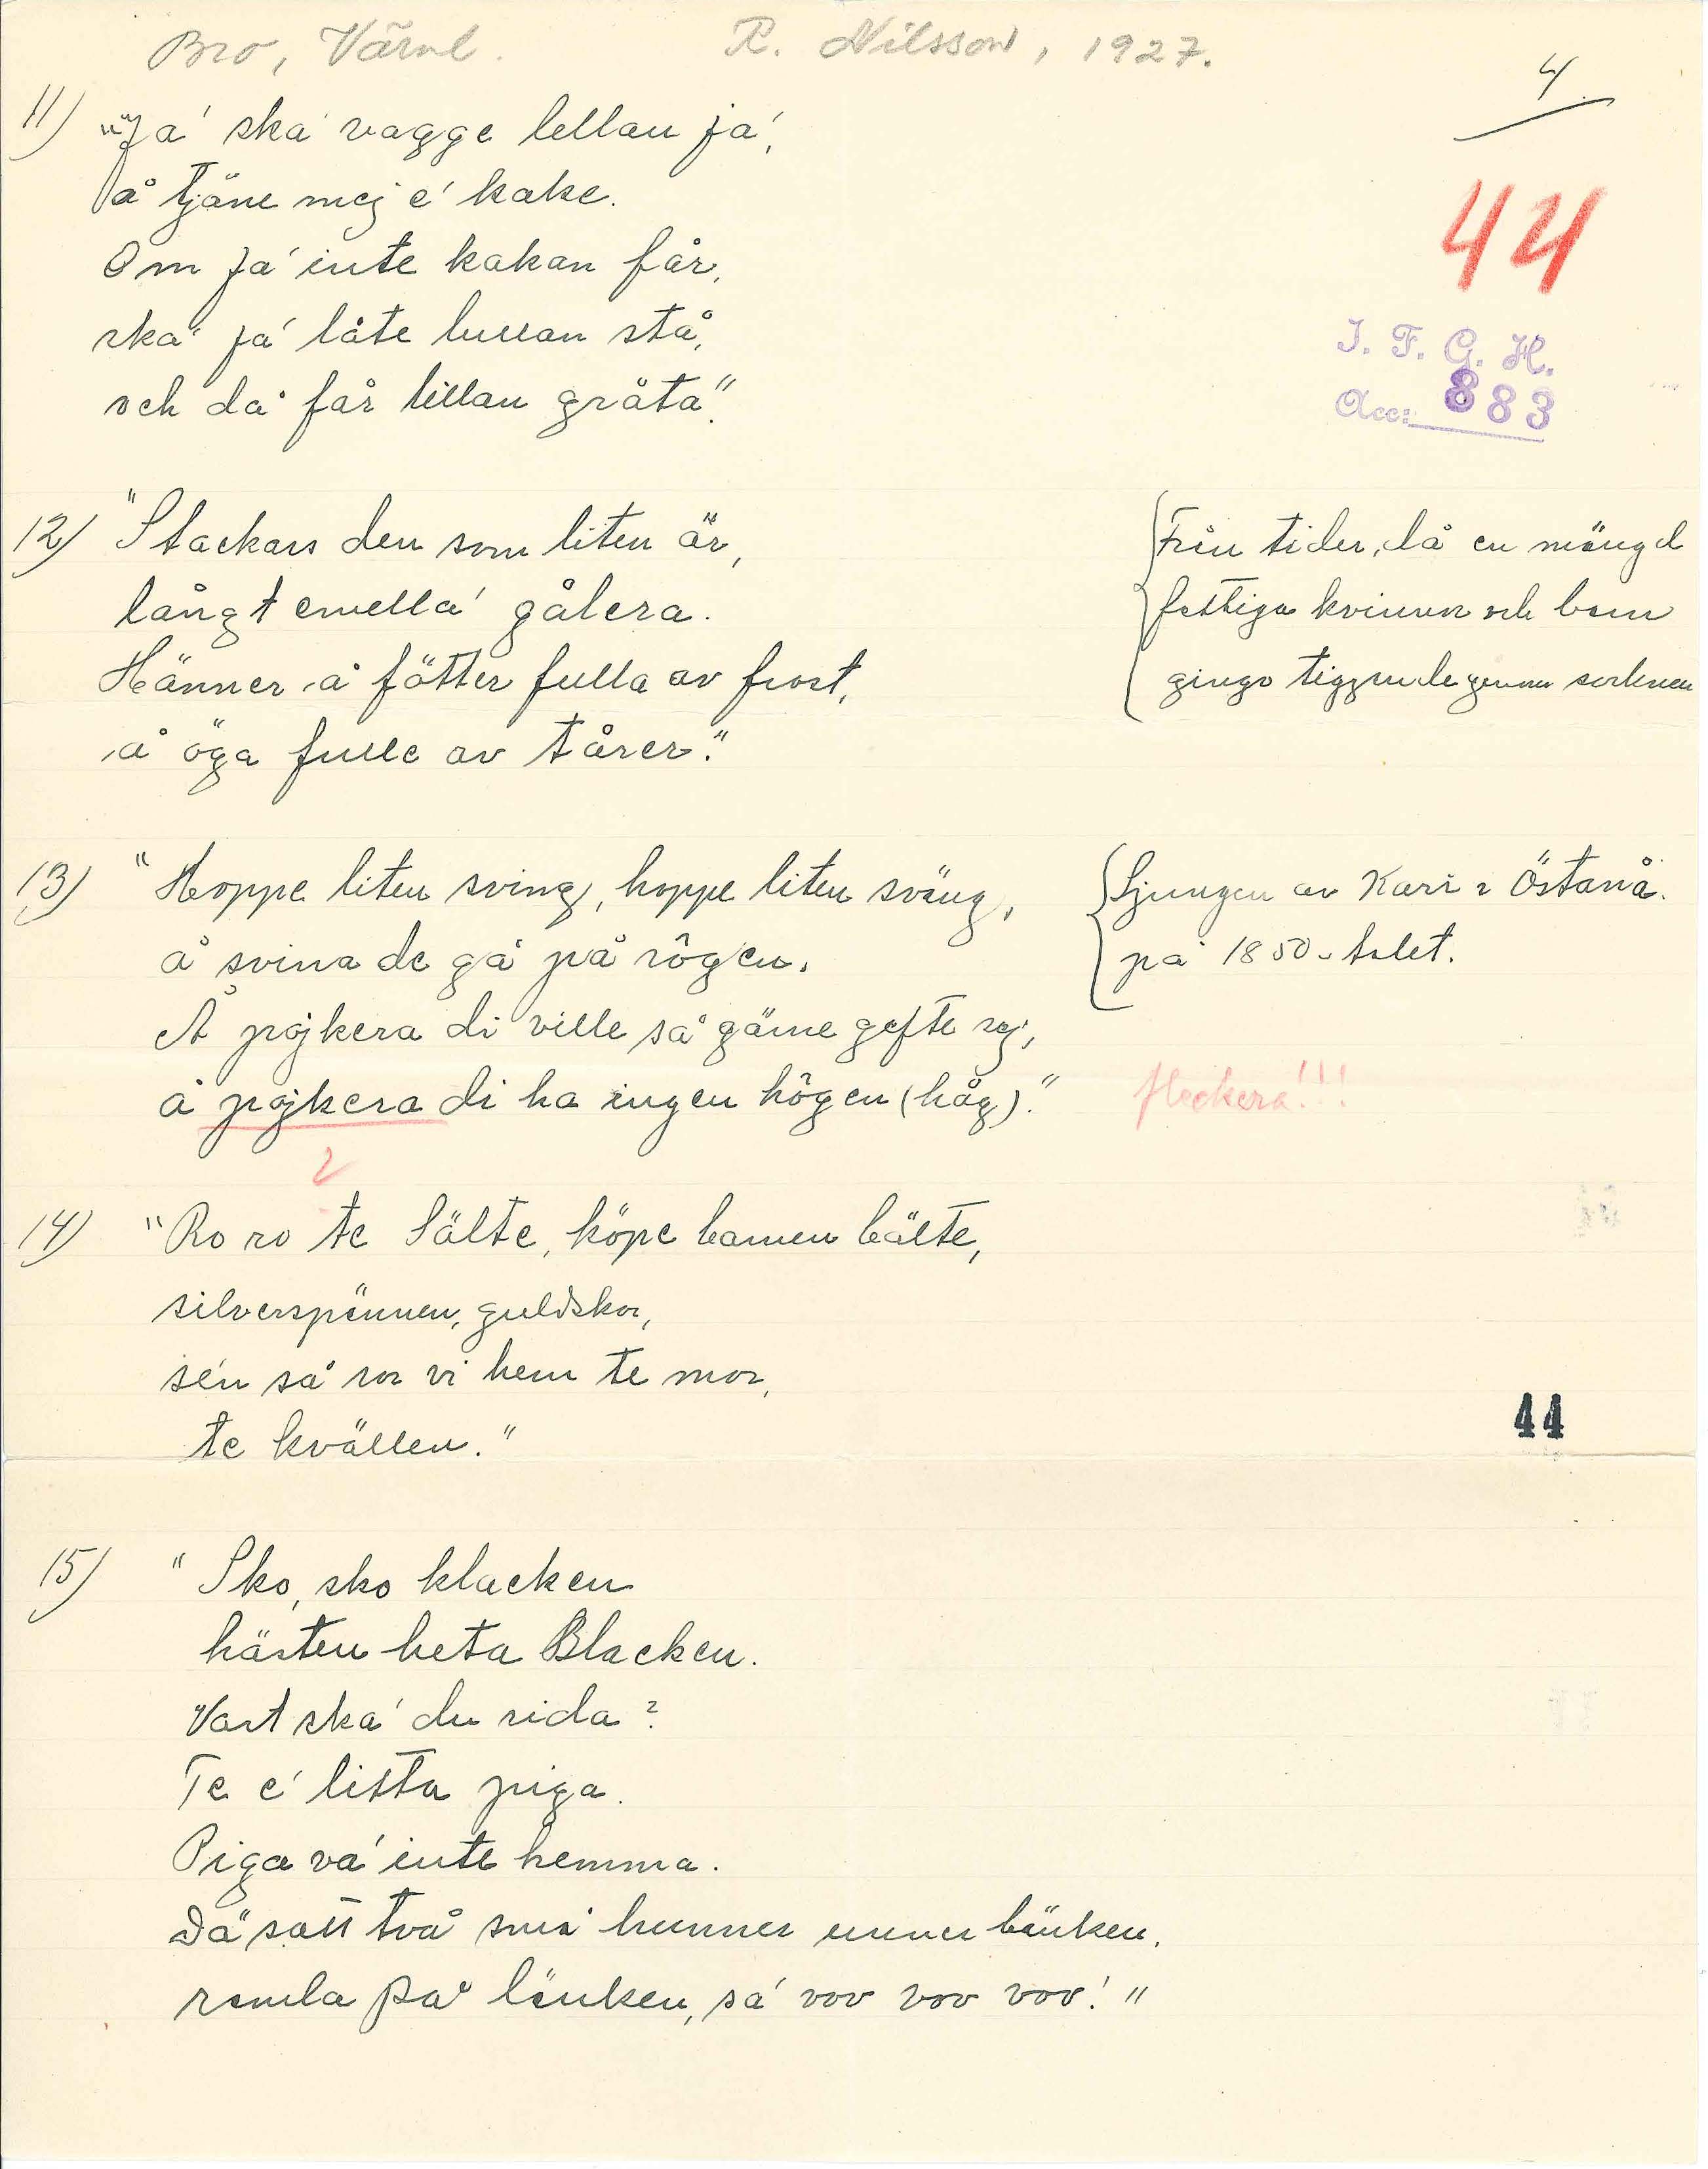 Bro, Värml. R. Nilsson, 1927.
4
11) "Ja' ska' vagge lellan ja',
å tjäne mej e' kake.
Om ja' inte kakan får,
ska' ja' låte lullan stå,
och då får lillan gråta."
44
I. F. G. H.
Acc: 883
12) "Stackars den som liten är,
långt emella' gålera.
Hänner å fötter fulla av frost,
å öga fulle av tårer."
Från tider, då en mängd
fattiga kvinnor och barn
gingo tiggande genom socknen
13) "Hoppe liten sving, hoppe liten sväng,
å svina de gå på rôgen.
Å pojkera di ville så gärne gefte sej,
å pojkera di ha ingen hôgen (håg)."
Sjungen av Kari i Östanå.
på 1850-talet.
fleckera!!!
?
14) "Ro ro te Sälte, köpe barnen bälte,
silverspännen, guldskor,
sén så ror vi hem te mor,
te kvällen."
44
15) "Sko, sko klacken
hästen heta Blacken.
Vart ska' du rida?
Te e' litta piga.
Piga va' inte hemma.
Dä satt två små hunner unner bänken,
ramla på länken, sa' vov vov vov!"